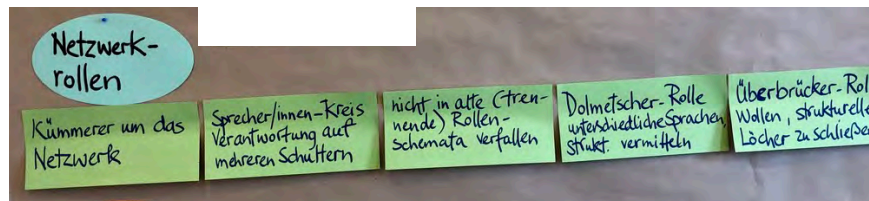 Netzwerk-
rollen
Kümmerer um das
Netzwerk
Sprecher/innen-Kreis
Verantwortung auf
mehreren Schultern
nicht in alte (tren-
nende) Rollen-
schemata verfallen
Dolmetscher-Rolle
unterschiedliche Sprachen,
strukt. vermitteln
Überbrücker-Rol
Wollen, strukturelle
Löcher zu schließe